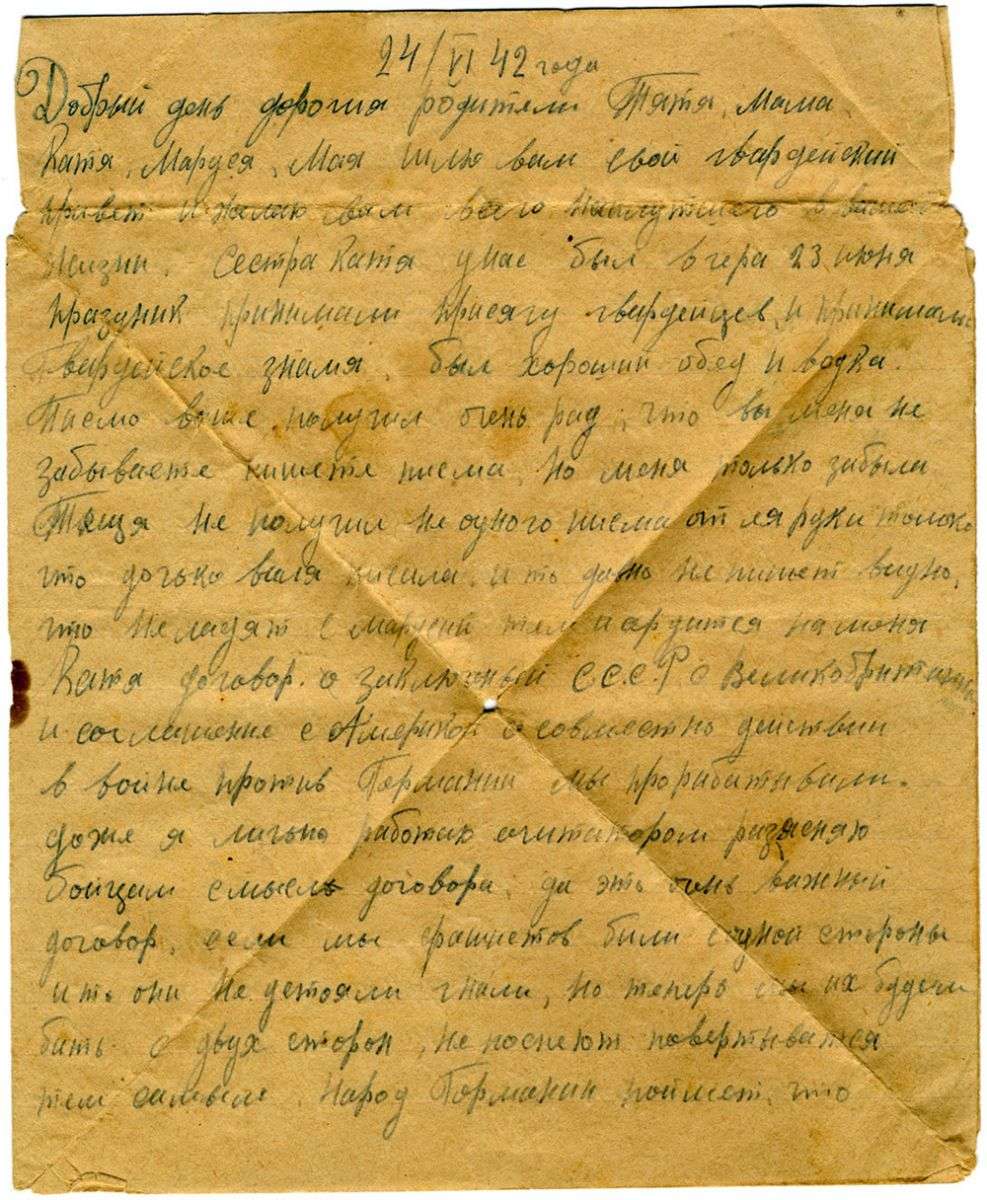 24/VI 42 года
Добрый день дорогия родители Тятя, мама
Катя, Маруся, Мая шлю вам свой гвардейский
привет и желаю вам всего наилутшего в вашей
жизни. Сестра Катя унас был вчера 23 июня
праздник принимали присягу гвардейцев и принимали
Гвардейское знамя. был хороший обед и водка.
Писмо ваше получил очень рад, что вы меня не
забываете пишете писма, но меня только забыла
Тёща не получил не одного писма от ля руки только
что дочька Валя писала. и то давно не пишет видно,
что неладят с Марусий тем и ардится на меня
Катя договор о заключный С.С.С.Р с Великобританией
и соглашение с Америкой о совместно действии
в войне против Германии мы прорабатывали.
даже я лично работаю агитатором разясняю
бойцам смысел договора, да это очень важный
договор, если мы фашистов били содной стороны
ито они не устояли гнали, но теперь мы их будем
бить с двух сторон, не поспеют повертыватся
тем самыем. Народ Германии поймет, что